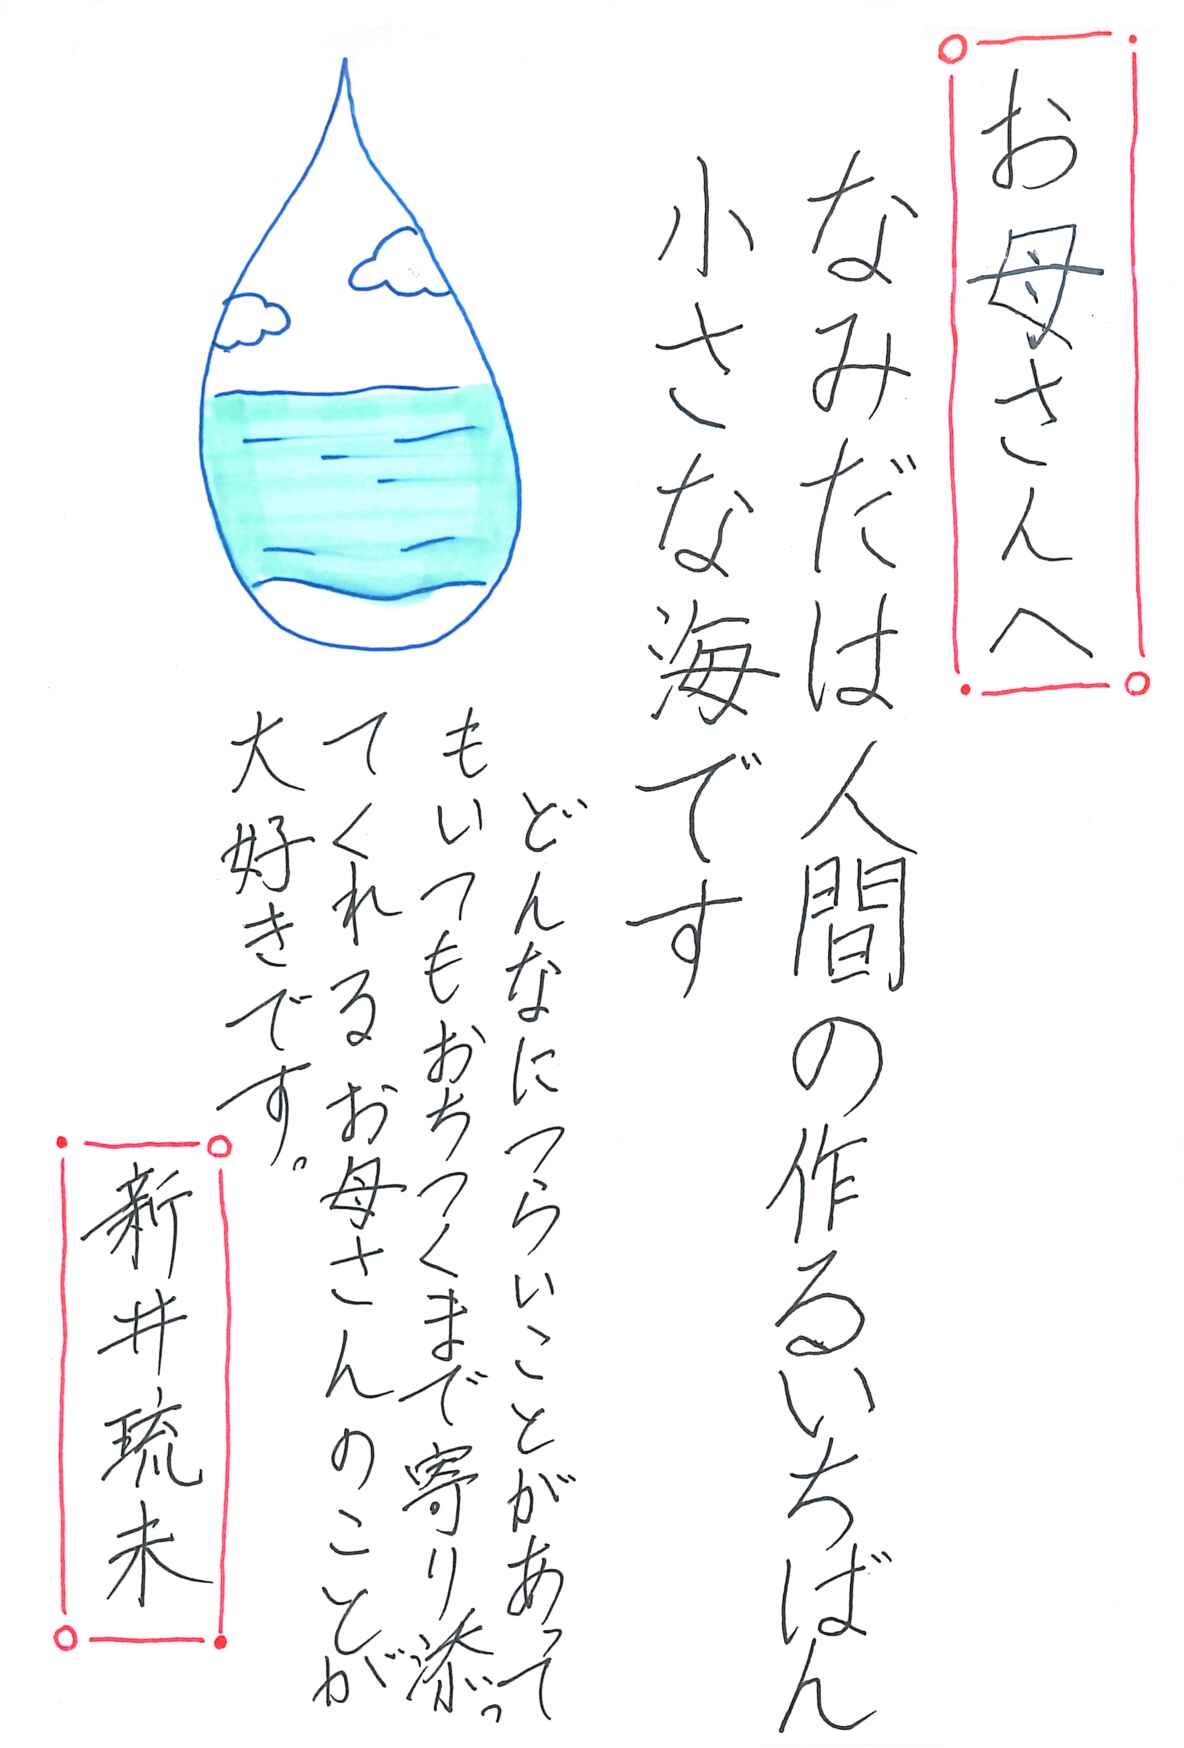 お母さんへ
なみだは人間の作るいちばん
小さな海です
どんなにつらいことがあって
もいつもおちつくまで寄り添っ
てくれるお母さんのことが
大好きです。
新井琉未